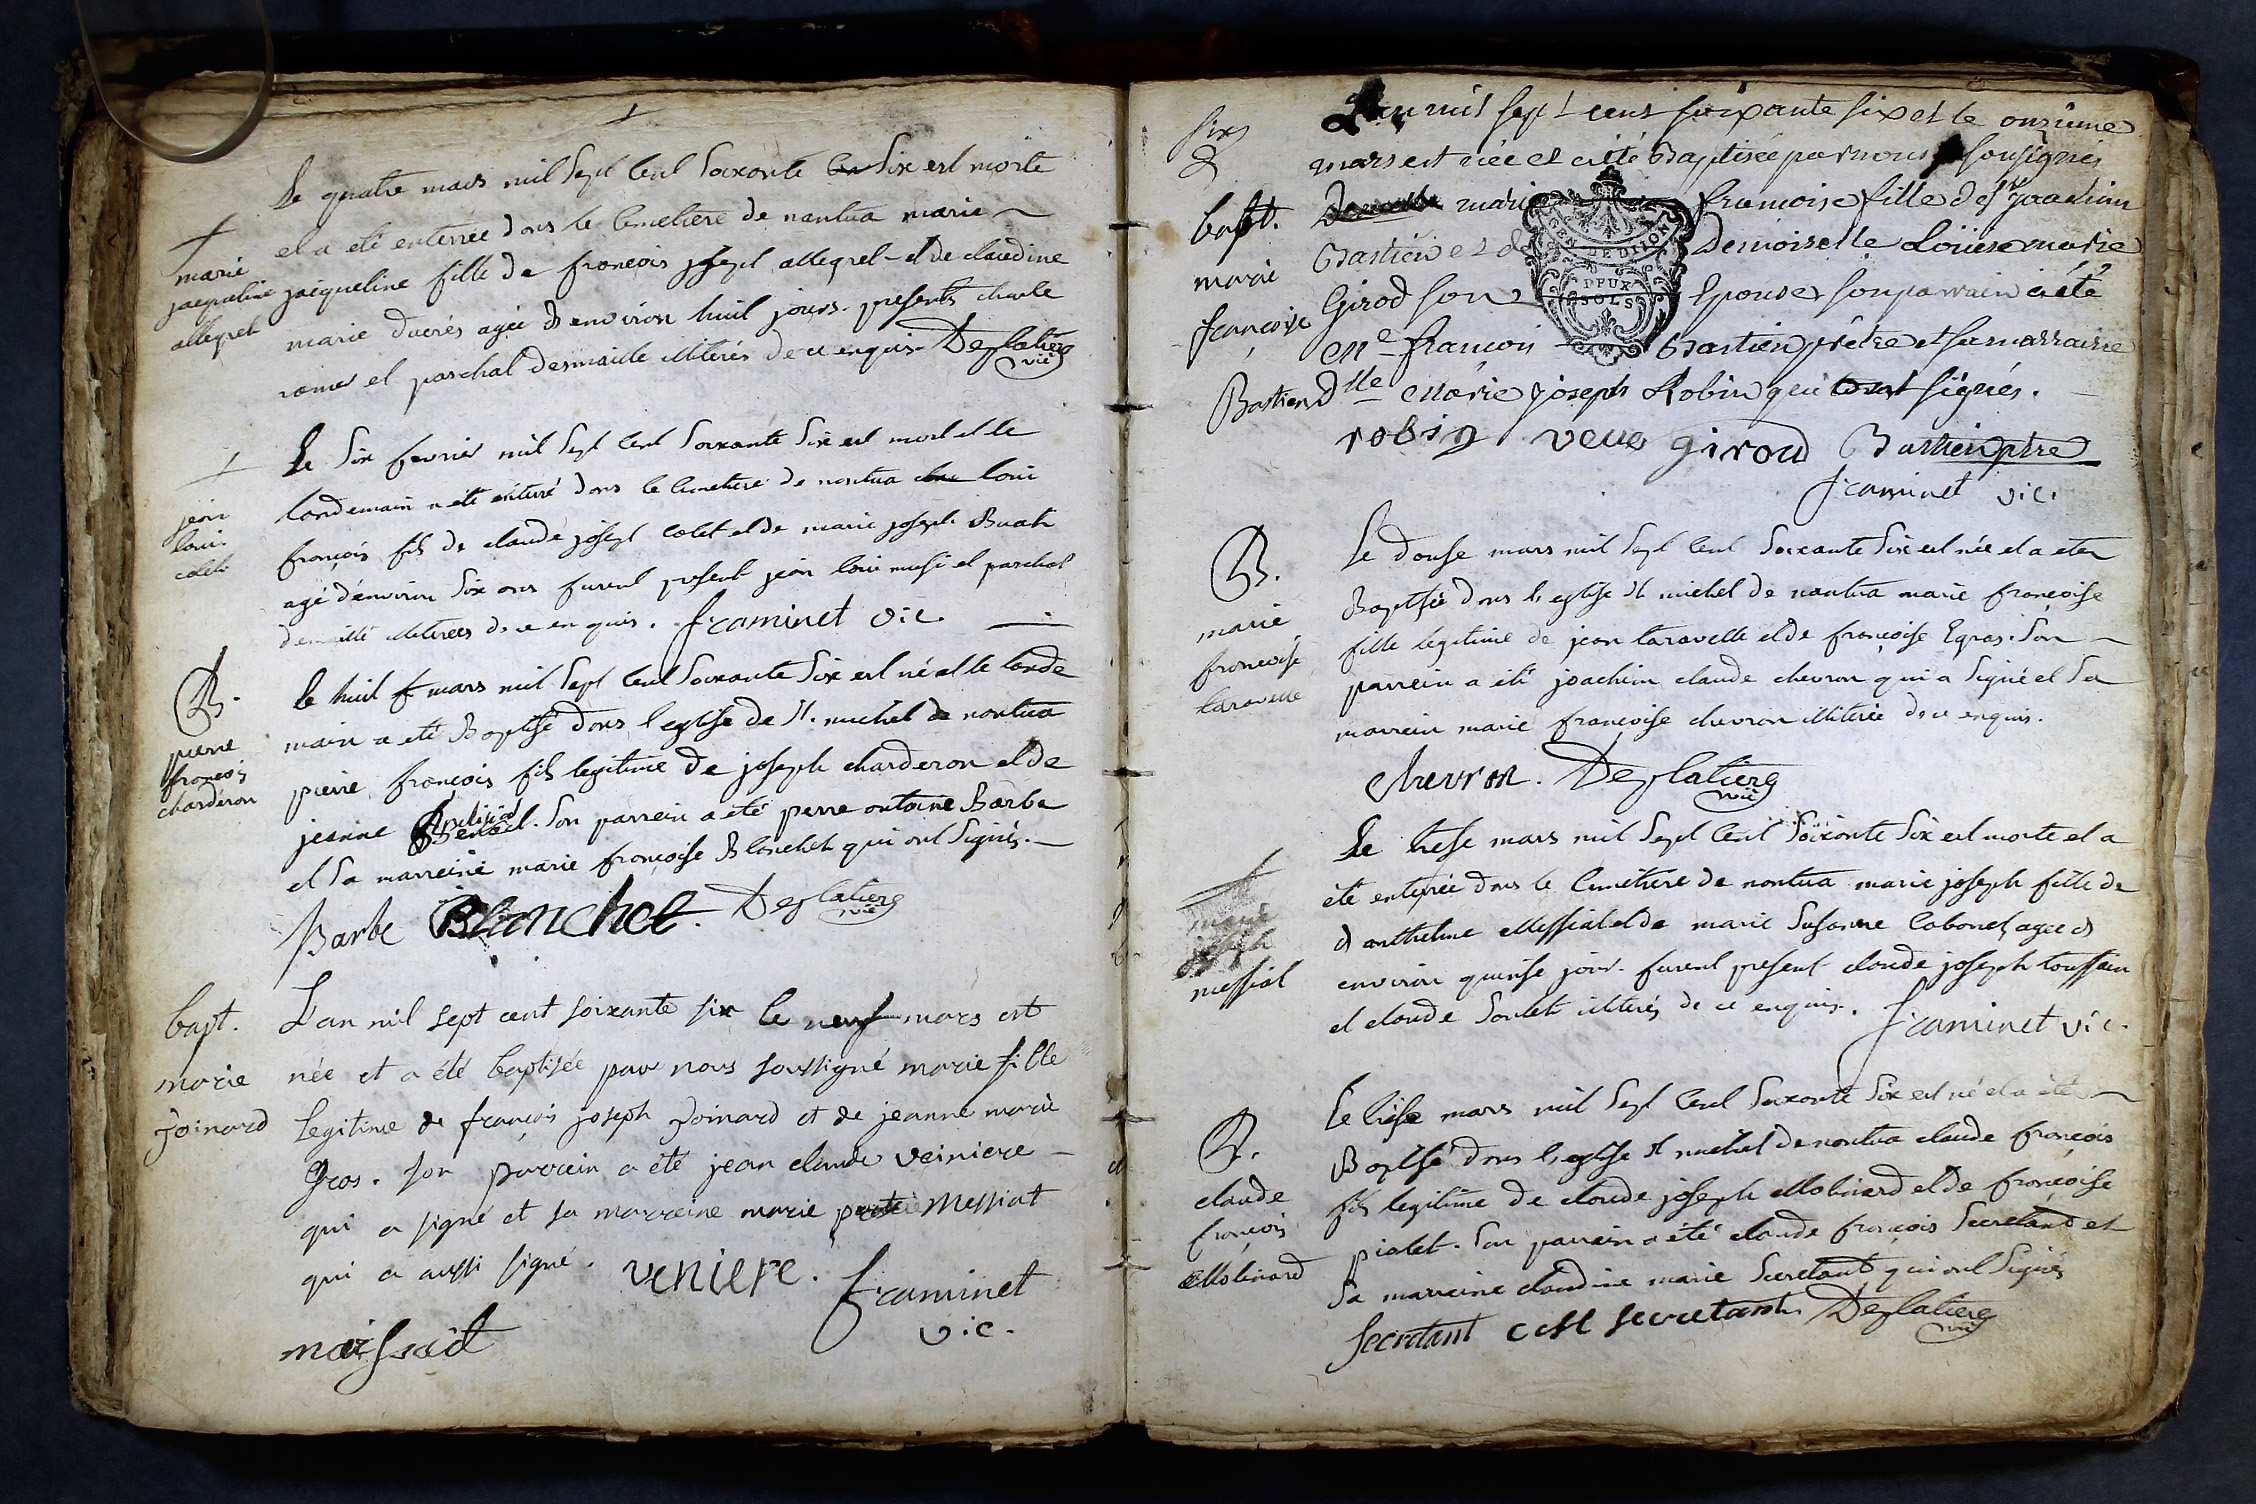 Le quatre mars mil Sept Cent Soixante Six est morte
et a eté enterrée dans le Cimetiere de nantua marie
jacqueline fille de francois joseph allegret et de claudine
marie ducrés agée d environ huit jours. presents charle
et paschal desmaide illiterés de ce enquis. Desplatiere
vic
marie
jacqueline
allegret
Le Six fevrier mil Sept Cent Soixante Six est mort et le
landemain a eté enterré dans le Cimetiere de nantua loui
françois fils de claude joseph colet et de marie joseph Buat
agé d'environ Six ans furent present jean loui et paschal
illiterées de ce enquis. fcaminet vic.
jean
loui
colet
Le huit mars mil Sept Cent Soixante Six est né et le lende
main a eté Baptisé dans l'eglise de St. michel de nantua
pierre françois fils legitime de joseph charderon et de
jeanne Son parrein a eté pierre antoine Barbe
et Sa marreine marie françoise Blanchet qui ont Signés.
Barbe Blanchet. Desplatiere
vic
B.
pierre
francois
charderon
L'an mil sept cent soixante six le neuf mars est
née et a été baptisée par nous soussigné marie fille
legitime de françois joseph Joinard et de jeanne marie
Gros. son parrein a été jean claude veiniere
qui a signé et sa marreine marie Messiat
qui a aussi signé. veniere. fcaminet
vic.
maissiat
bapt.
marie
Joinard
L'an mil sept cent soixante six et le onzieme
mars est née et a été Baptisée par nous sousignés
marie francoise fille de Sr Joachim
Bastien et d Demoiselle Loüise marie
Girod son Epouse son parrain a été
Mre francois Bastien prêtre et sa marraine
Dlle Marie joseph Robin qui ont signés.
robin veuve giroud Bastien ptre
fcaminet vic.
bapt.
marie
françoise
Bastien
GEN DE DIJON
DEUX
SOLS
Le douse mars mil Sept Cent Soixante Six est née et a eté
Baptisée dans l'eglise St michel de nantua marie françoise
fille legitime de jean taravelle et de françoise Egras. Son
parrein a eté joachim claude chevron qui a Signé et Sa
marrein marie françoise chevron illiterée de ce enquis.
chevron. Desplatiere
vic
B.
marie
francoise
taravelle
Le trese mars mil Sept Cent Soixante Six est morte et a
eté enterrée dans le Cimetiere de nantua marie joseph fille de
d anthelme Messiat et de marie Susanne Cabonet agée d
environ quinse jour. furent present claude joseph toussain
et claude Soulet illiterés de ce enquis. fcaminet vic.
marie
joseph
messiat
Le trese mars mil Sept Cent Soixante Six est né et a eté
Baptisé dans l'eglise St michel de nantua claude françois
fils legitime de claude joseph Molinard et de françoise
piolet. Son parrein a été claude françois Secretant et
Sa marreine claudine marie Secretant qui ont Signés
Secretant c M secretant. Desplatiere
vic
B.
claude
françois
Molinard